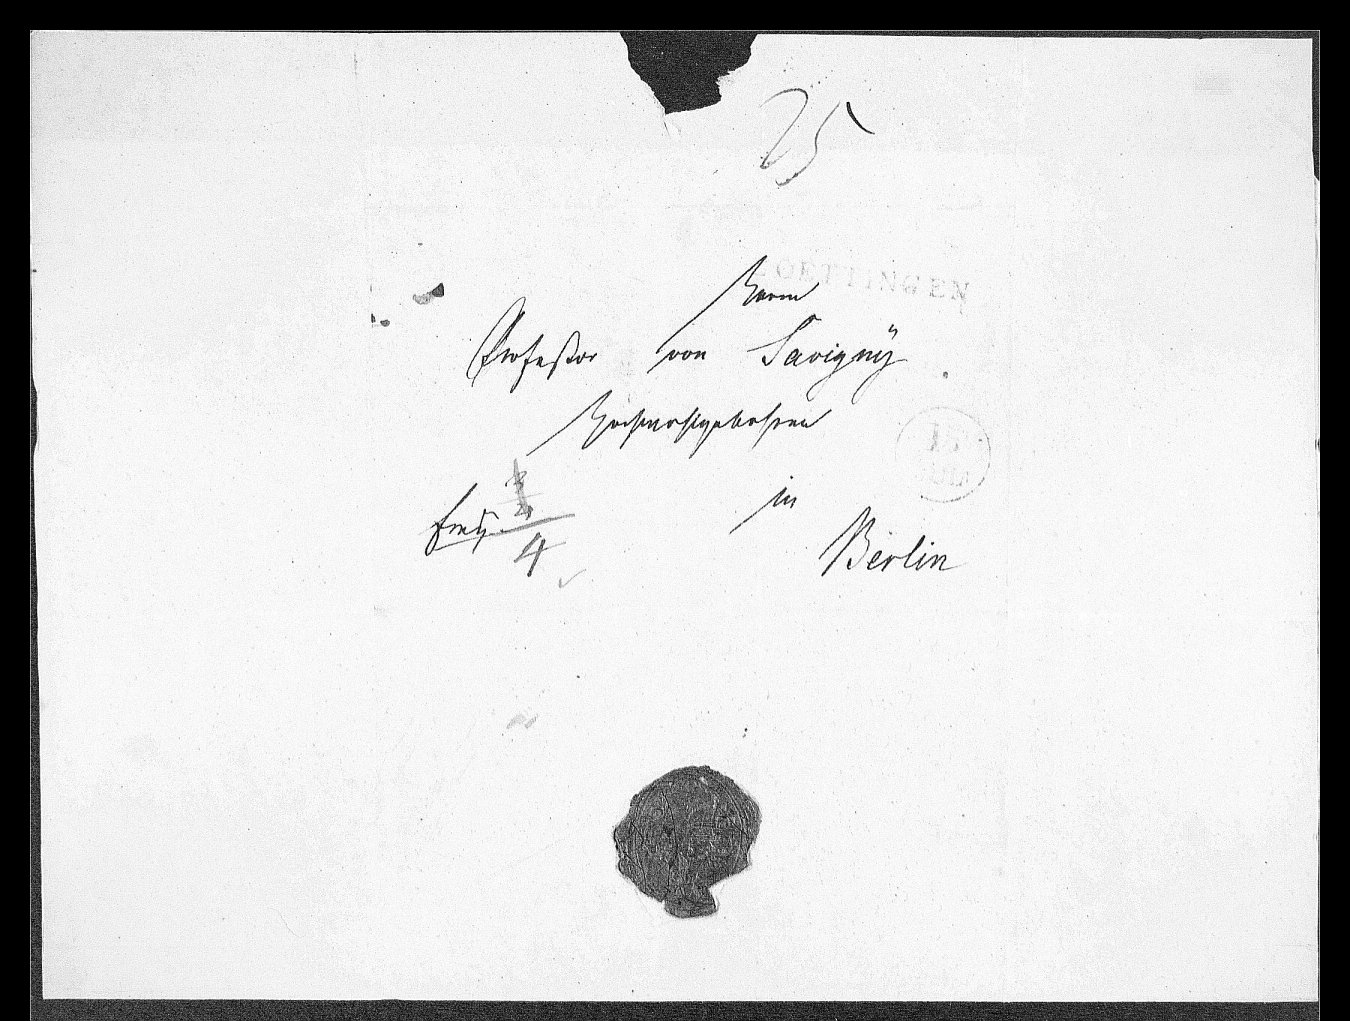 25
GOETTINGEN
Herrn
Professor von Savigny
Hochwohlgebohren
in
frey.
4
Berlin